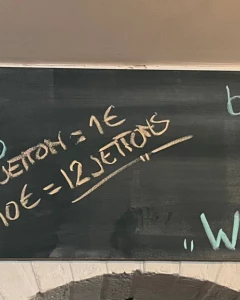 JETTON = 1€
10€ = 12 JETTONS
b
"W